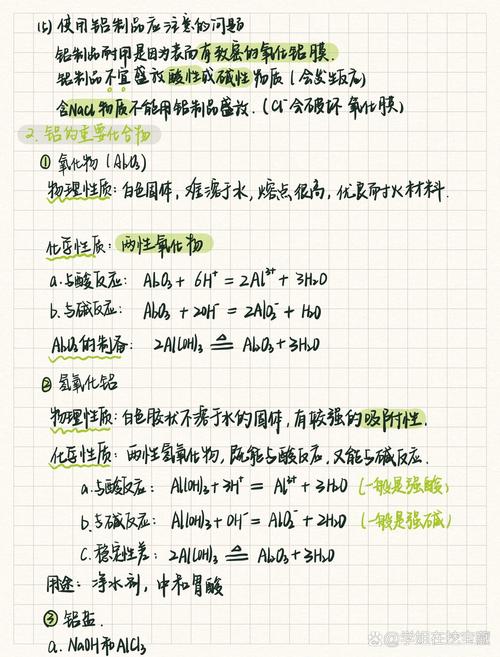 (5) 使用铝制品应注意的问题
铝制品耐用是因为表面有致密的氧化铝膜.
铝制品不宜盛放酸性或碱性物质(会发生反应)
含NaCl物质不能用铝制品盛放.(Cl⁻会破坏氧化膜)
2. 铝的重要化合物
① 氧化物(Al₂O₃)
物理性质:白色固体,难溶于水,熔点很高,优良耐火材料.
化学性质:两性氧化物
a.与酸反应: Al₂O₃ + 6H⁺ = 2Al³⁺ + 3H₂O
b.与碱反应: Al₂O₃ + 2OH⁻ = 2AlO₂⁻ + H₂O
Al₂O₃的制备: 2Al(OH)₃ ≜ Al₂O₃+3H₂O
② 氢氧化铝
物理性质:白色胶状不溶于水的固体,有较强的吸附性.
化学性质:两性氢氧化物,既能与酸反应,又能与碱反应.
a.与酸反应: Al(OH)₃+3H⁺ = Al³⁺+3H₂O (一般是强酸)
b.与碱反应: Al(OH)₃+OH⁻ = AlO₂⁻+2H₂O (一般是强碱)
C.稳定性差: 2Al(OH)₃ ≜ Al₂O₃+3H₂O
用途:净水剂,中和胃酸
③ 铝盐.
a. NaOH和AlCl₃